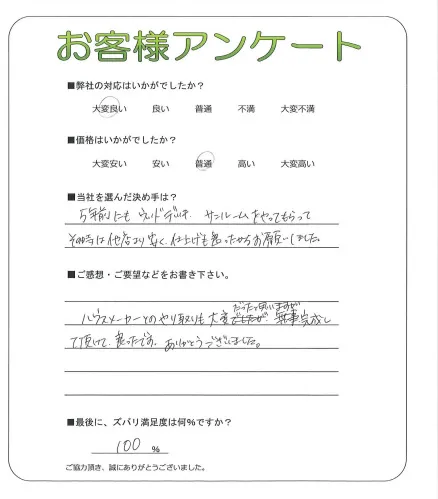 お客様アンケート
■弊社の対応はいかがでしたか？
大変良い 良い 普通 不満 大変不満
■価格はいかがでしたか？
大変安い 安い 普通 高い 大変高い
■当社を選んだ決め手は？
5年前にも ウッドデッキ、サンルームをやってもらって
その時は他店より安く、仕上げも良かったからお願いしました。
■ご感想・ご要望などをお書き下さい。
だったと思いますが
ハウスメーカーとのやり取りも大変でしたが、無事完成し
て頂けて、良かったです。ありがとうございました。
■最後に、ズバリ満足度は何％ですか？
100 %
ご協力頂き、誠にありがとうございました。